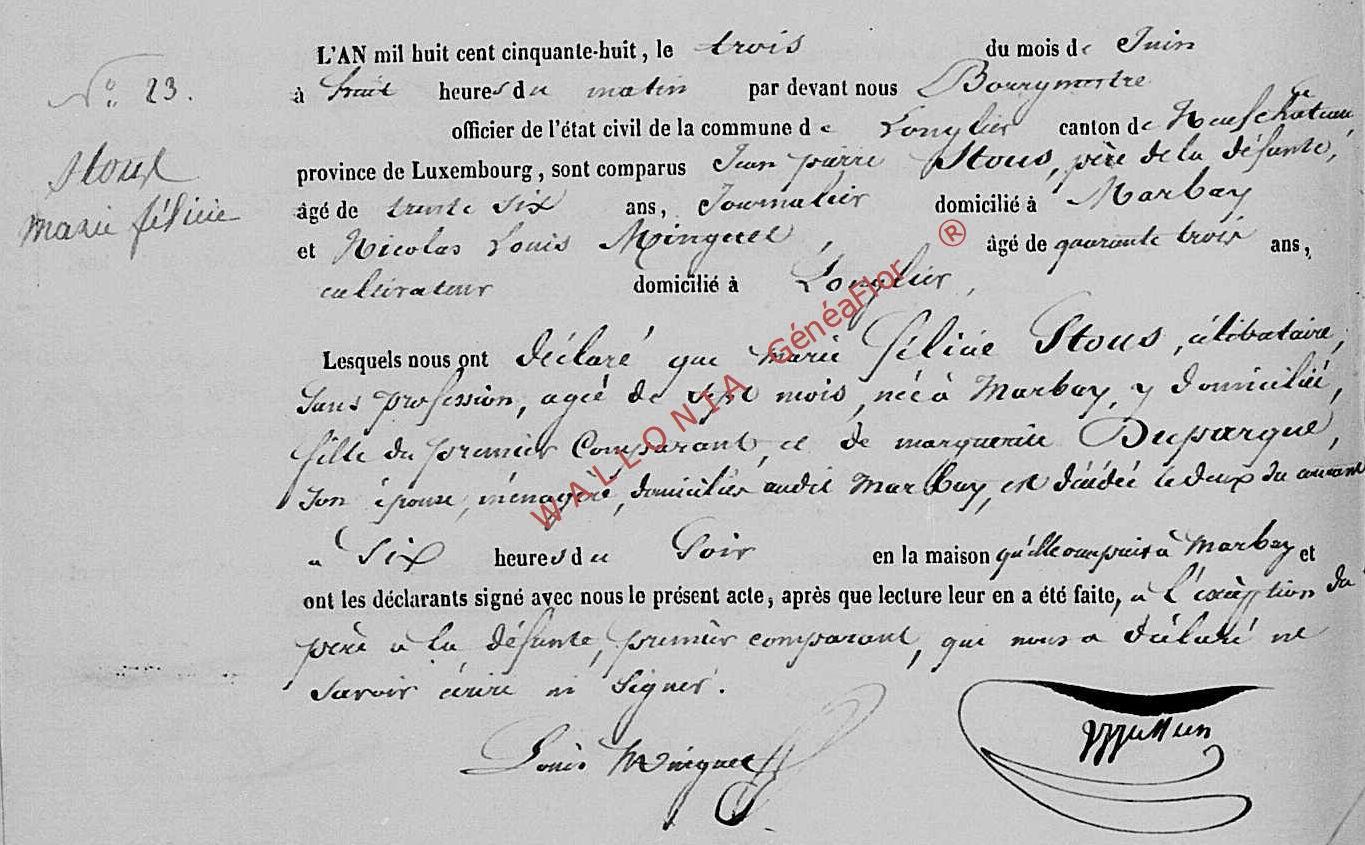 L'AN mil huit cent cinquante-huit, le trois du mois de Juin
N° 23.
à huit heures du matin par devant nous Bourgmestre
officier de l'état civil de la commune de Longlier canton de Neufchâteau
Stous
marie félicie
province de Luxembourg, sont comparus Jean pierre Stous, père de la défunte,
âgé de trente six ans, Journalier domicilié à Marbay
et Nicolas Louis Minguet, âgé de quarante trois ans,
cultivateur domicilié à Longlier,
Lesquels nous ont déclaré que marie féliciè Stous, célibataire,
sans profession, agée de sept mois, née à Marbay, y domiciliée,
fille du premier Comparant, et de marguerite Duparque,
son épouse, ménagère, domiciliés audit Marbay, est décédée le deux du courant
à six heures du soir en la maison qu'elle occupait à Marbay et
ont les déclarants signé avec nous le présent acte, après que lecture leur en a été faite, à l'exception du
père à la défunte, premier comparant, qui nous a déclaré ne
savoir écrire ni signer.
Louis Minguet
WALLONIA GénéaFlor ®